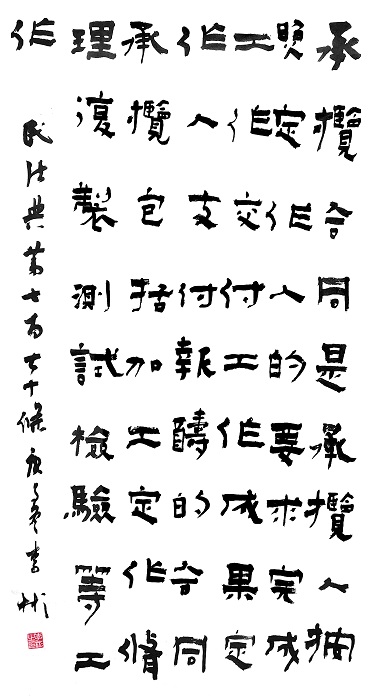 承攬合同是承攬人按
照定作人的要求完成
工作交付工作成果定
作人支付報醻的合同
承攬包括加工定作脩
理復製測試檢驗等工
作
民法典第七百七十條 庚子冬李彬